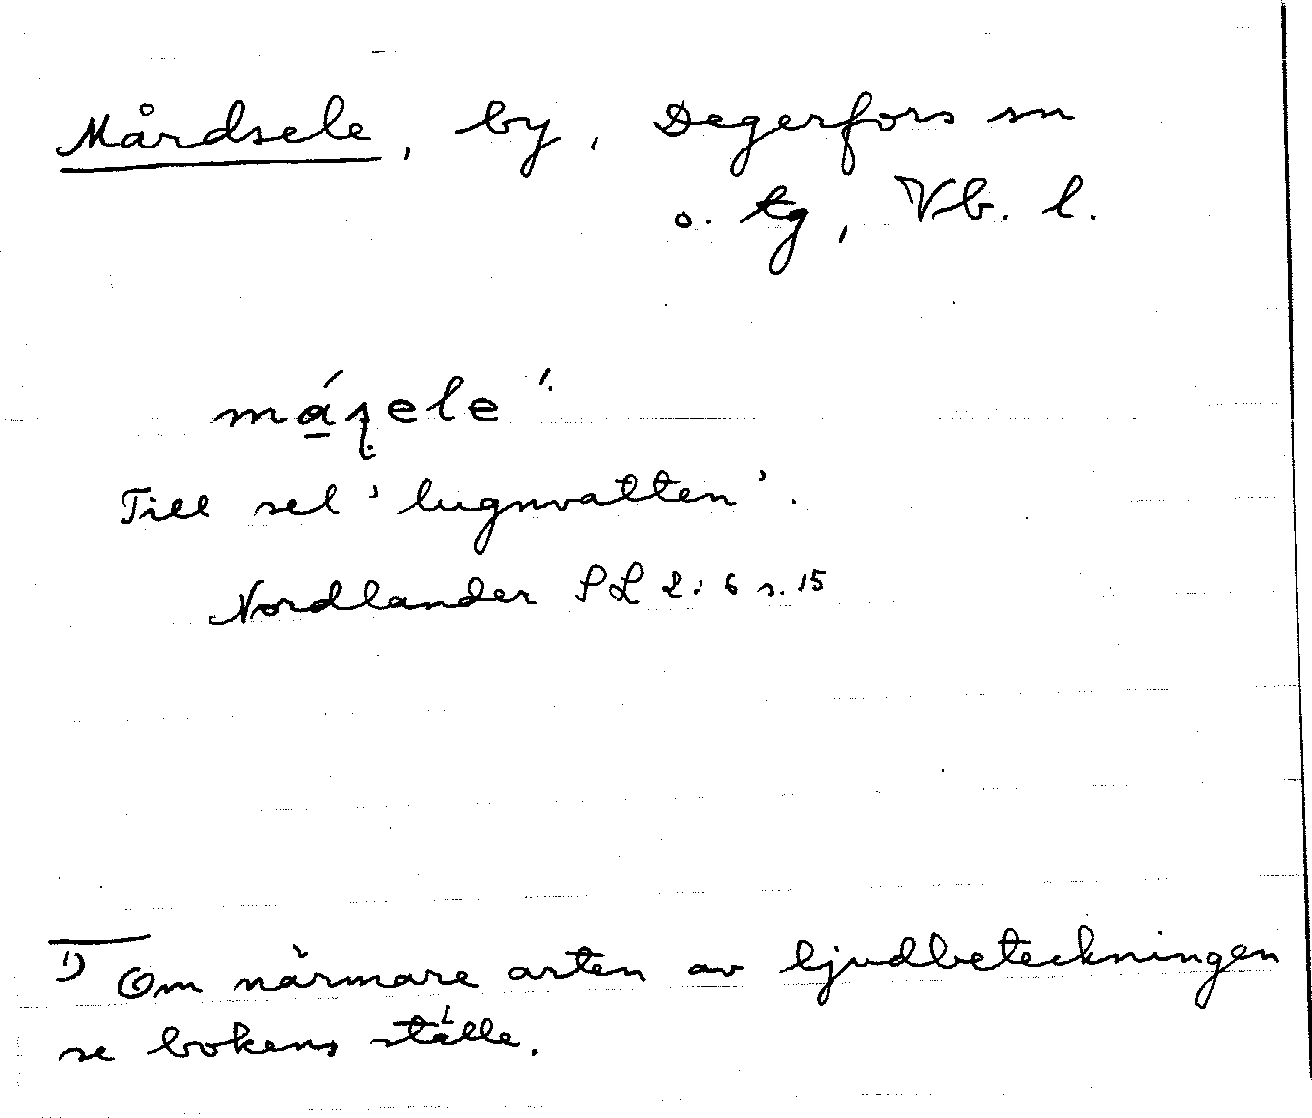 Mårdsele, by, Degerfors sn
o. tg, Vb. l.
Till sel 'lugnvatten'.
Nordlander SL 2:6 s. 15
1) Om närmare arten av ljudbeteckningen
se bokens ställe.